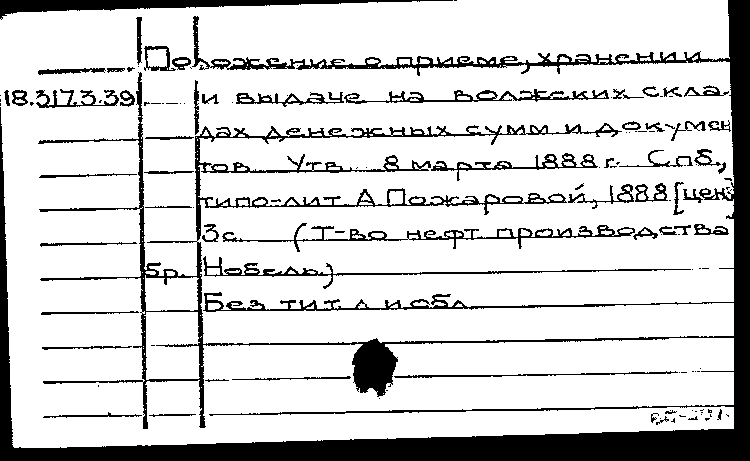 Положение о приеме, хранении и
18.317.3.39 и выдаче на волжских скла-
дах денежных сумм и докумен
тов Утв. 8 марта 1888 г. Спб.,
типо-лит А Пожаровой, 1888 [ценз
3с. (Т-во нефт производства
бр. Нобель.)
Без тит. л и обл